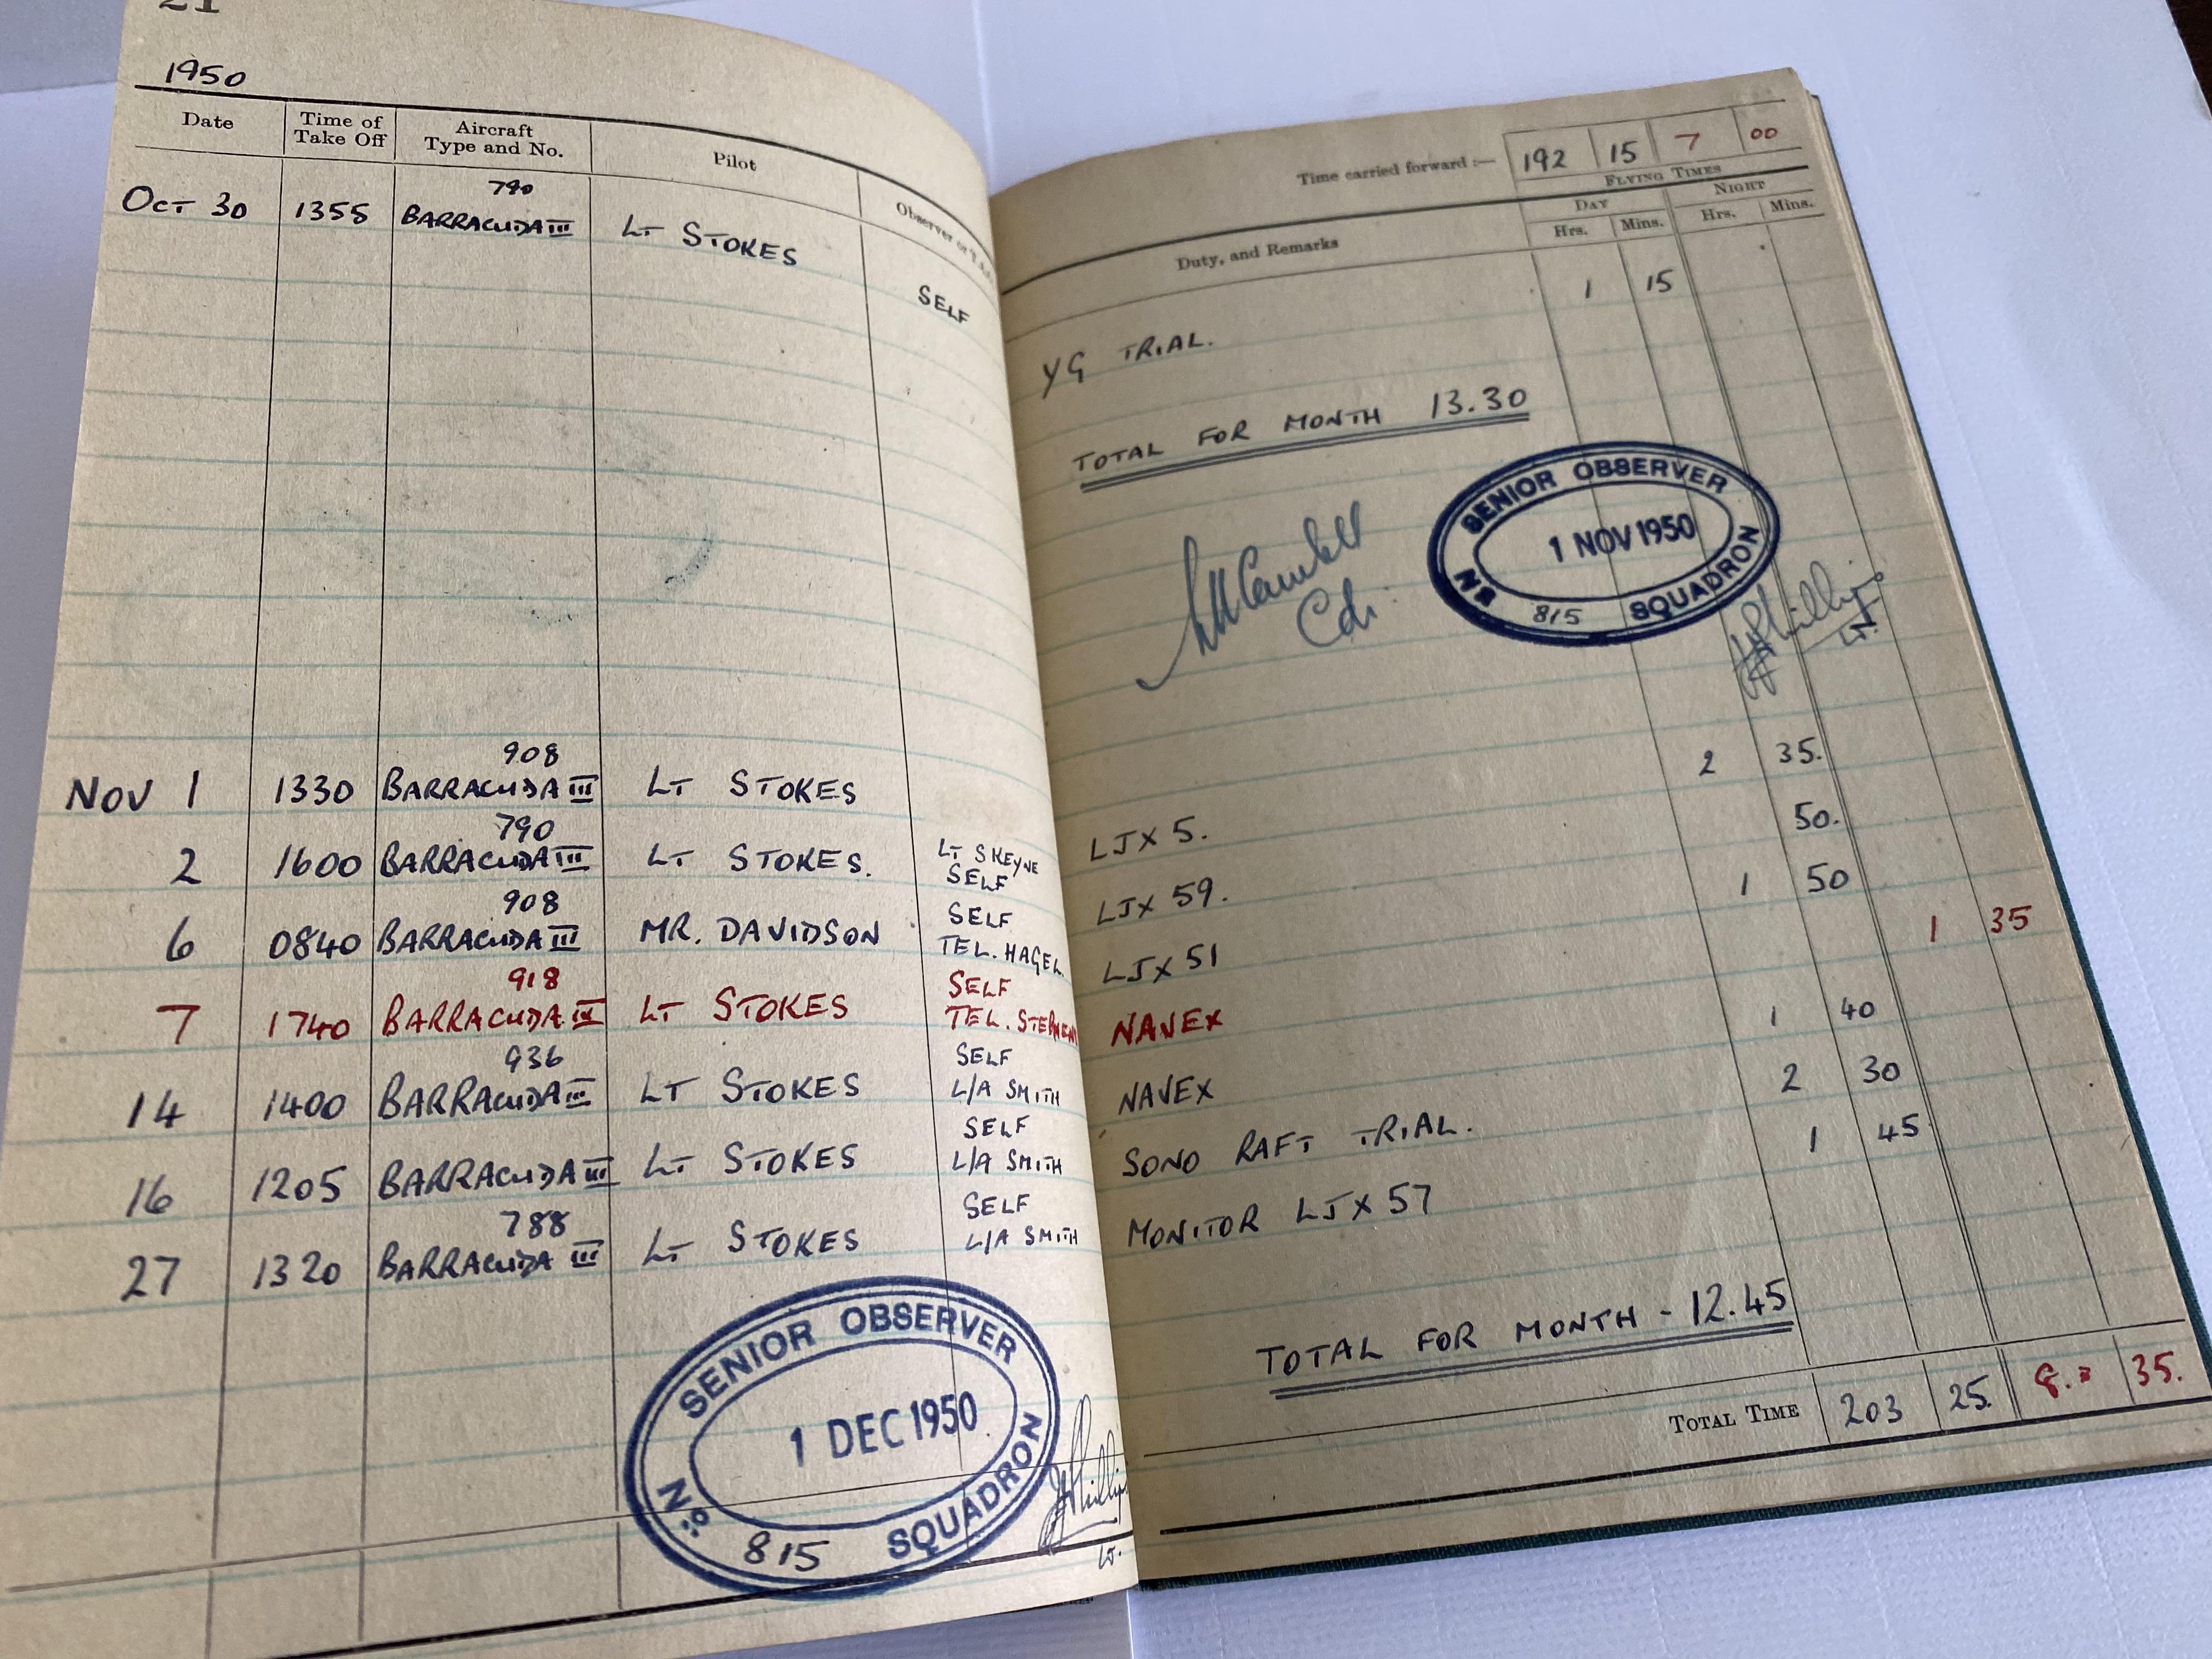 21
1950
Date Time of Take Off Aircraft Type and No. Pilot Observer or
790
Oct 30 1355 BARRACUDA III LT STOKES
SELF
908
NOV 1 1330 BARRACUDA III LT STOKES
790
2 1600 BARRACUDA III LT STOKES. LT SKEYNE
SELF
908
6 0840 BARRACUDA III MR. DAVIDSON SELF
TEL. HAGEL
918
7 1740 BARRACUDA III LT STOKES SELF
TEL.
936
14 1400 BARRACUDA III LT STOKES SELF
L/A SMITH
16 1205 BARRACUDA III LT STOKES SELF
L/A SMITH
788
27 1320 BARRACUDA III LT STOKES SELF
L/A SMITH
SENIOR OBSERVER
1 DEC 1950
No: 815 SQUADRON
Phillips
Lt.
Time carried forward :— 192 15 7 00
FLYING TIMES
DAY NIGHT
Duty, and Remarks Hrs. Mins. Hrs. Mins.
1 15
YG TRIAL.
TOTAL FOR MONTH 13.30
SENIOR OBSERVER
1 NOV 1950
No 815 SQUADRON
Cdr.
Phillips
Lt.
2 35.
LJX 5. 50.
LJX 59. 1 50
LJX 51 1 35
NAVEX 1 40
NAVEX 2 30
SONO RAFT TRIAL. 1 45
MONITOR LJX 57
TOTAL FOR MONTH - 12.45
TOTAL TIME 203 25. 8. 35.